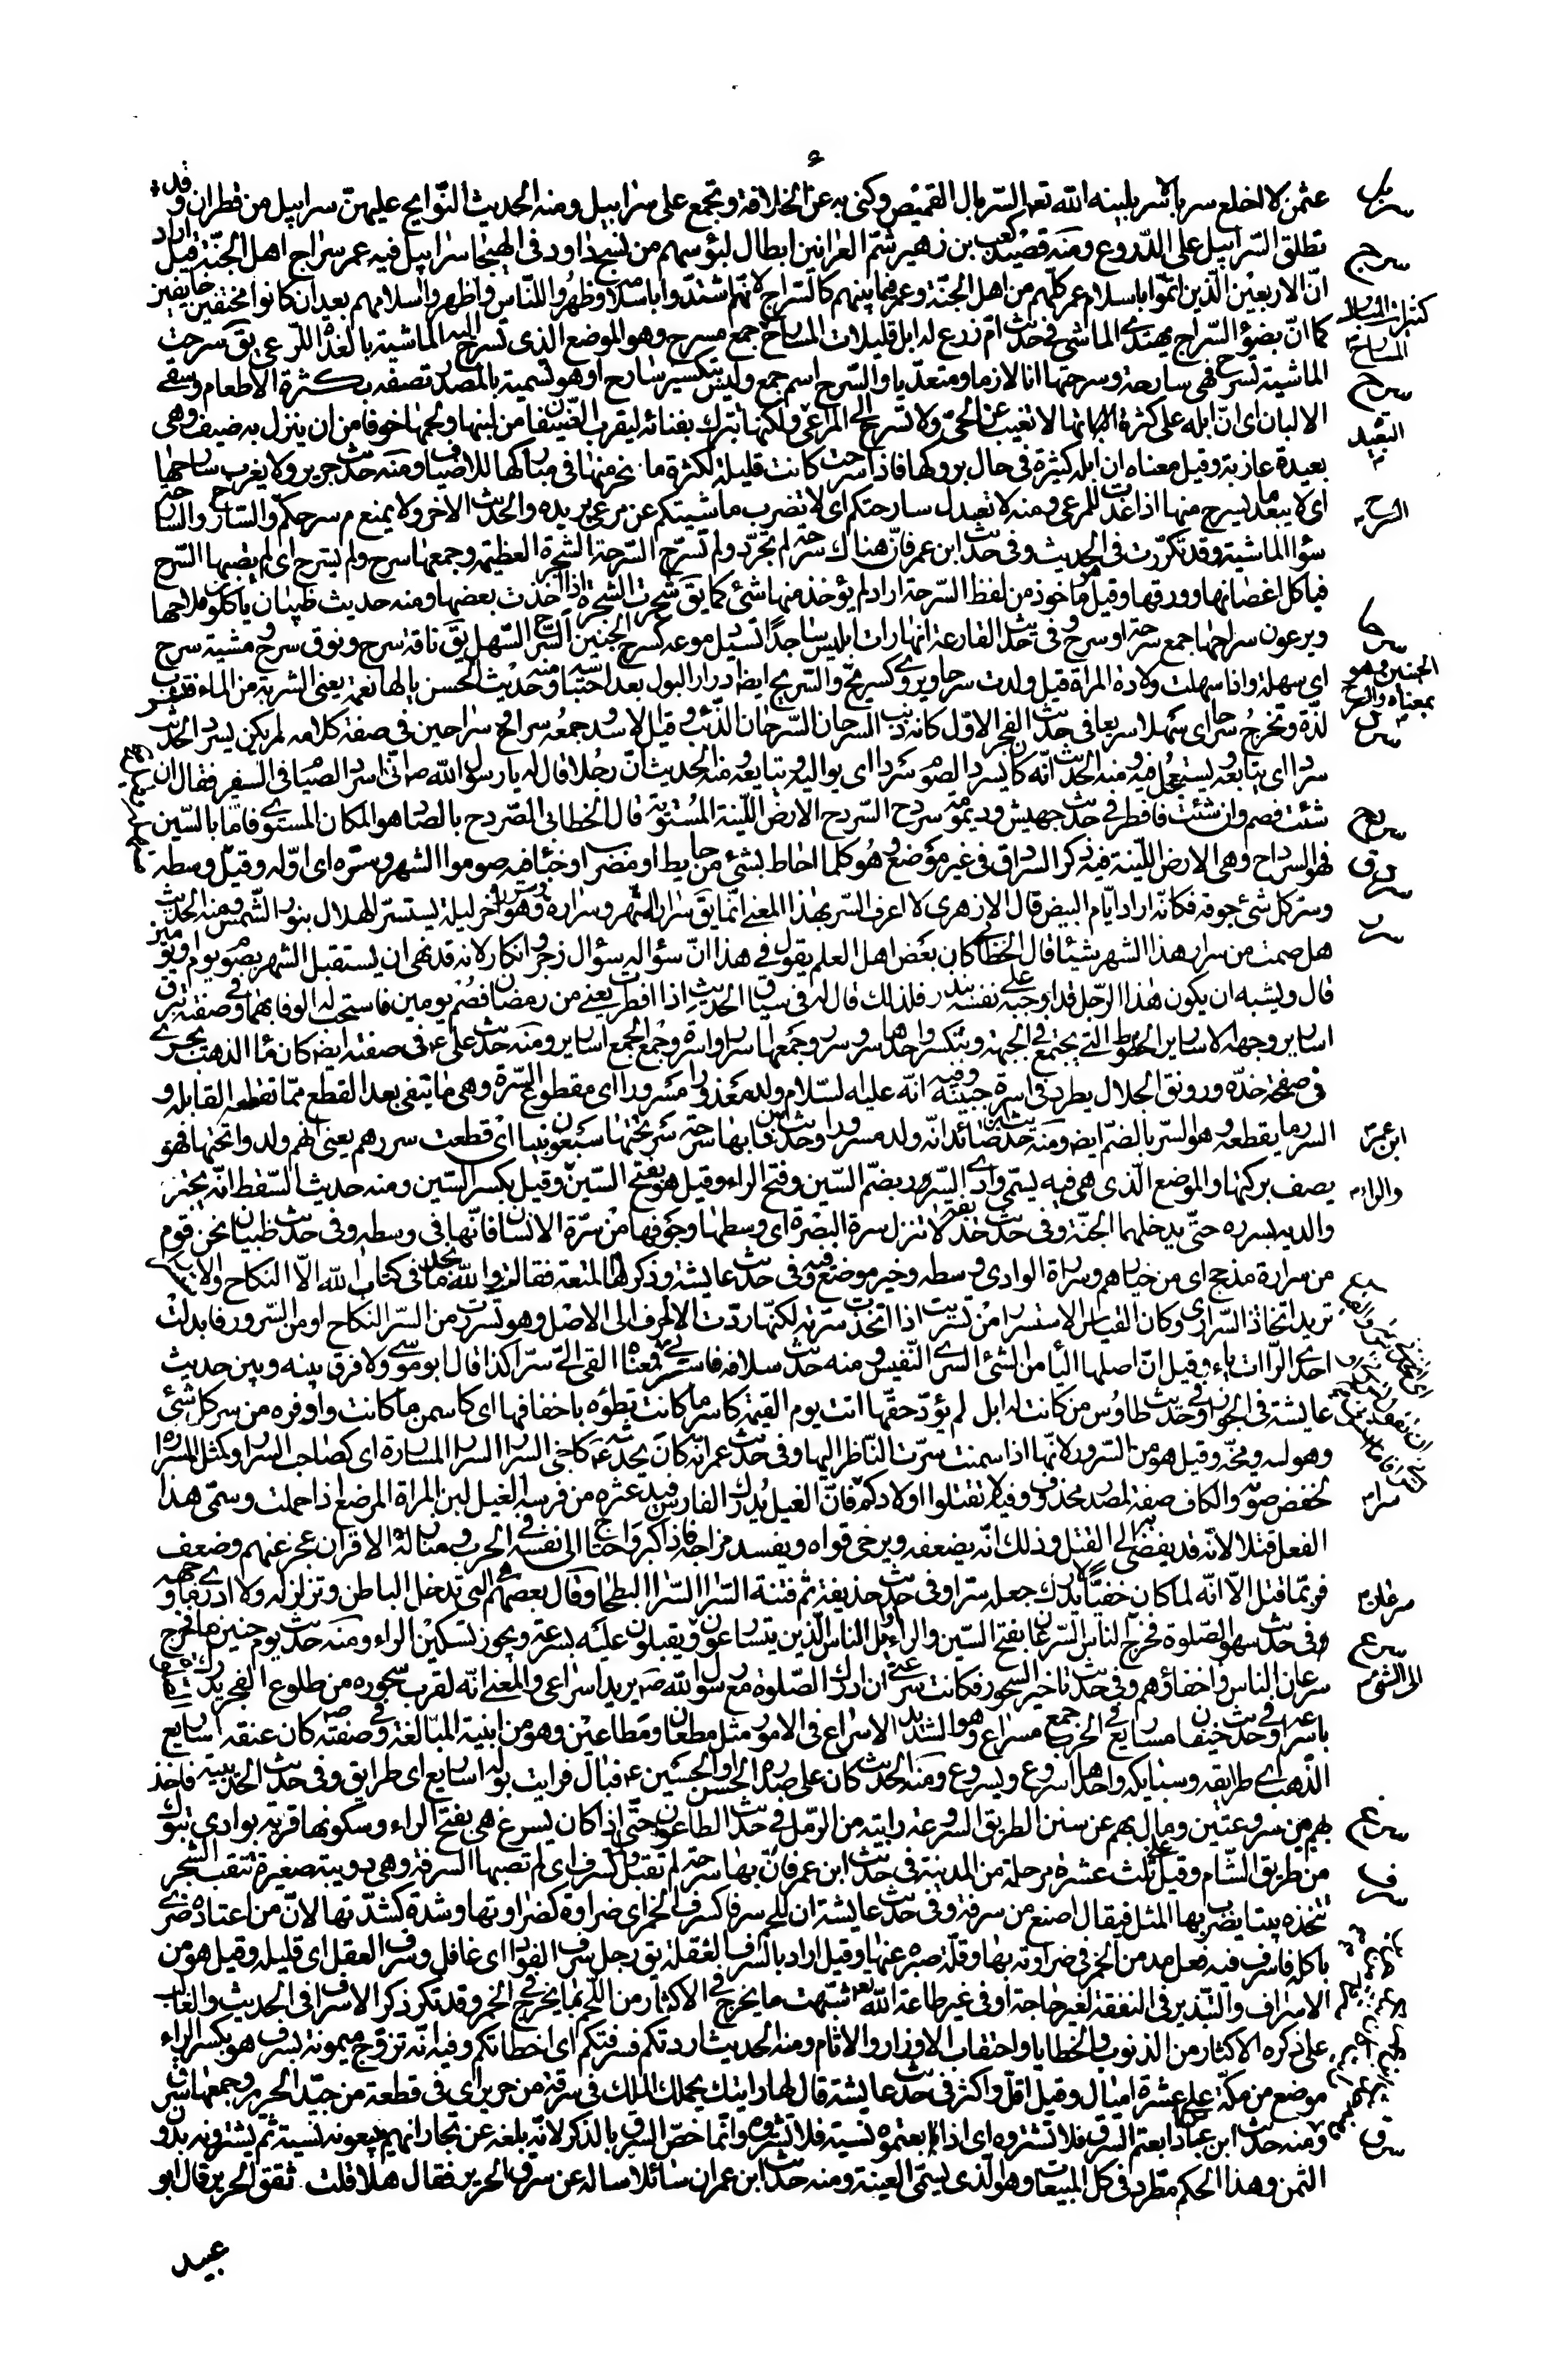 عثمن لا اخلع سربالا سربلنيه الله تعه السربال القميص وكنى به عن الخلافة وتجمع على سرابيل ومنه الحديث النوايح عليهن سرابيل من قطران وقد
تطلق السرابيل على الدروع ومنه قصيد كعب بن زهير شم العرانين ابطال لبؤسهم من نسج داود في الهيجا سرابيل فيه عمر سراج اهل الجنة قيل اراد
ان الاربعين الذين اتموا باسلام عمر كلهم من اهل الجنة وعمر فيما بينهم كالسراج لانهم اشتدوا باسلامه وظهروا للناس واظهروا اسلامهم بعد ان كانوا مختفين خايفين
كما ان بضوء السراج يهتدى الماشى في حديث ام زرع له ابل قليلات المسارح جمع مسرح وهو الموضع الذى تسرح اليه الماشية بالغداة للرعى يق سرحت
الماشية تسرح فهى سارحة وسرحتها انا لازما ومتعديا والسرح اسم جمع وليس بتكسير سارح او هو تسمية بالمصدر تصفه بكثرة الاطعام وسقى
الالبان اى ان ابله على كثرتها لا تغيب عن الحى ولا تسرح الى المراعى ولكنها تترك بفنائه ليقرب الضيفان من لبنها ولحمها خوفا من ان ينزل به ضيف وهى
بعيدة عازبة وقيل معناه ان ابله كثيرة في حال بروكها فاذا سرحت كانت قليلة لكثرة ما نحر منها في مباركها للاضياف ومنه حديث جرير ولا يعزب سارحها
اى لا يبعد ما يسرح منها اذا غدت للمرعى ومنه لا تعدل سارحتكم اى لا تضرب ماشيتكم عن مرعى يريده والحديث الاخر ولا يمنع سرحكم والسارح والسارحة
سواء الماشية وقد تكررت في الحديث وفي حديث ابن عمر فان هناك سرحة لم تجرد ولم تسرح السرحة الشجرة العظيمة وجمعها سرح ولم تسرح اى لم يصبها السرح
فياكل اغصانها وورقها وقيل هو ماخوذ من لفظ السرحة اراد لم يؤخذ منها شئ كما يق شجرت الشجرة اذا اخذت بعضها ومنه حديث ظبيان ياكلون ملاحها
ويرعون سراحها جمع سرحة او سرح وفي حديث الفارعة انها رات ابليس ساجدا تسيل دموعه كسرح الجنين السرح السهل يق ناقة سرح ونوق سرح ومشية سرح
اى سهلة واذا سهلت ولادة المراة قيل ولدت سرحا ويروى كسريح والسريح ايضا ادرار البول بعد احتباسه ومنه حديث الحسن يا لها نعمة يعنى الشربة من الماء تشرب
لذة وتخرج سرحا اى سهلا سريعا في حديث الفجر الاول كانه ذنب السرحان السرحان الذئب وقيل الاسد وجمعه سراح وسراحين في صفة كلامه لم يكن يسرد الحديث
سردا اى يتابعه ويستعجل فيه ومنه الحديث انه كان يسرد الصوم سردا اى يواليه ويتابعه ومنه الحديث ان رجلا قال له يا رسول الله ص انى اسرد الصيام في السفر فقال ان
شئت فصم وان شئت فافطر في حديث جهيش وديمومة سردح السردح الارض اللينة المستوية قال الخطابى الصردح بالصاد هو المكان المستوى فاما بالسين
فهو السرداح وهى الارض اللينة فيه ذكر السرادق في غير موضع وهو كلما احاط بشئ من حايط او مضرب او خباء فيه صوموا الشهر وسره اى اوله وقيل وسطه
وسر كل شئ جوفه فكانه اراد ايام البيض قال الازهرى لا اعرف السر بهذا المعنى انما يق سرار الشهر وسراره وسرره وهو اخر ليلة يستسر الهلال بنور الشمس ومنه الحديث
هل صمت من سرار هذا الشهر شيئا قال الخطابى كان بعض اهل العلم يقول في هذا ان سؤاله سؤال زجر وانكار لانه قد نهى ان يستقبل الشهر بصوم يوم او يومين
قال ويشبه ان يكون هذا الرجل قد اوجبه على نفسه بنذر فلذلك قال له في سياق الحديث اذا افطرت يعنى من رمضان فصم يومين فاستحب له الوفا بهما وفي صفته تبرق
اسارير وجهه الاسارير الخطوط التى تجتمع في الجبهة وتتكسر واحدها سر وسرر وجمعها اسرار واسرة وجمع الجمع اسارير ومنه حديث على ع في صفته ايضا كان ماء الذهب يجرى
في صفحة خده ورونق الجلال يطرد في اسرة جبينه وفيه انه عليه السلام ولد معذورا مسرورا اى مقطوع السرة وهى ما يبقى بعد القطع مما تقطعه القابلة و
السرر ما يقطعه وهو السر بالضم ايضا ومنه حديث ابن صائد انه ولد مسرورا وحديث ابن عمر فان بها سرحة سر تحتها سبعون نبيا اى قطعت سررهم يعنى انهم ولدوا تحتها فهو
يصف بركتها والموضع الذى هى فيه يسمى وادى السرر بضم السين وفتح الراء وقيل هو بفتح السين وقيل بكسر السين ومنه حديث السقط انه يجتر
والديه بسرره حتى يدخلهما الجنة وفي حديث حذيفة لا تنزل سرة البصرة اى وسطها وجوفها من سرة الانسان فانها في وسطه وفي حديث ظبيان نحن قوم
من سرارة مذحج اى من خيارهم وسرارة الوادى وسطه وخير موضع فيه وفي حديث عايشة وذكر لها المتعة فقالت والله ما نجد في كتاب الله الا النكاح والاستسرار
تريد اتخاذ السرارى وكان القياس الاستسراء من تسريت اذا اتخذت سرية لكنها ردت الحرف الى الاصل وهو تسررت من السر النكاح او من السرور فابدلت
احدى الراات ياء وقيل ان اصلها الياء من الشئ السرى النفيس ومنه حديث سلافة فاستسرنى معناه القى الى سرا كذا قال ابو موسى ولا فرق بينه وبين حديث
عايشة في الجواز وفي حديث طاوس من كانت له ابل لم يؤد حقها اتت يوم القيمة كاسر ما كانت تطؤه باخفافها اى كاسمن ما كانت واوفره من سر كل شئ
وهو لبه ومخه وقيل هو من السرور لانها اذا سمنت سرت الناظر اليها وفي حديث عمر انه كان يحدثه ع كاخى السرار السرار المسارة اى كصاحب السرار او كمثل المساره
لخفض صوته والكاف صفة لمصدر محذوف وفيه لا تقتلوا اولادكم سرا فان الغيل يدرك الفارس فيدعثره من فرسه الغيل لبن المراة المرضع اذا حملت وسمى هذا
الفعل قتلا لانه قد يفضى به الى القتل وذلك انه يضعفه ويرخى قواه ويفسد مزاجه فاذا كبر واحتاج الى نفسه في الحرب ومنازلة الاقران عجز عنهم وضعف
فربما قتل الا انه لما كان خفيا لا يدرك جعله سرا وفي حديث حذيفة ثم فتنة السراء السراء البطحاء وقال بعضهم هى التى تدخل الباطن وتزلزله ولا ادرى ما وجهه
وفي حديث سهو الصلوة فخرج سرعان الناس السرعان بفتح السين والراء اوائل الناس الذين يتسارعون الى الشئ ويقبلون عليه بسرعة ويجوز تسكين الراء ومنه حديث يوم حنين فخرج
سرعان الناس واخفاؤهم وفي حديث تاخير السحور فكانت سرعتى ان ادرك الصلوة مع رسول الله ص يريد اسراعى والمعنى انه لقرب سحوره من طلوع الفجر يدرك الصلوة
باسراعه وفي حديث خيفان مساريع في الحرب جمع مسراع وهو الشديد الاسراع في الامور مثل مطعان ومطاعين وهو من ابنية المبالغة وفي صفته كان عنقه اساريع
الذهب اى طرايقه وسبايكه واحدها اسروع ويسروع ومنه الحديث كان على صدره الحسن او الحسين ع فبال فرايت بوله اساريع اى طرايق وفي حديث الحديبية فاخذ
بهم بين سروعتين ومال بهم عن سنن الطريق السروعة رابية من الرمل في حديث الطاعون حتى اذا كان بسرغ هى بفتح الراء وسكونها قرية بوادى تبوك
من طريق الشام وقيل على ثلث عشرة مرحلة من المدينة في حديث ابن عمر فان بها سرحة لم تعبل ولم تسرف اى لم تصبها السرفة وهى دويبة صغيرة تثقب الشجر
تتخذه بيتا يضرب بها المثل فيقال اصنع من سرفة وفي حديث عايشة ان للحم سرفا كسرف الخمر اى ضراوة كضراوتها وشدة كشدتها لان من اعتاده ضرى
باكله فاسرف فيه فعل مدمن الخمر في ضراوته بها وقلة صبره عنها وقيل اراد بالسرف الغفلة يق رجل سرف الفؤاد اى غافل وسرف العقل اى قليله وقيل هو من
الاسراف والتبذير في النفقة لغير حاجة او في غير طاعة الله تعه شبهت ما يخرج في الاكثار من اللحم بما يخرج في الخمر وقد تكرر ذكر الاسراف في الحديث والغالب
على ذكره الاكثار من الذنوب والخطايا واحتقاب الاوزار والاثام ومنه الحديث اردتكم فسرفتكم اى اخطاتكم وفيه انه تزوج ميمونة بسرف هو بكسر الراء
موضع من مكة على عشرة اميال وقيل اقل واكثر في حديث عايشة قال لها رايتك يحملك الملك في سرقة من حرير اى في قطعة من جيد الحرير وجمعها سرق
ومنه حديث ابن عباس اذا بعتم السرق فلا تشتروه اى اذا بعتموه نسية فلا تشتروه وانما خص السرق بالذكر لانه بلغه عن تجار انهم يبيعونه نسية ثم يشترونه بدون
الثمن وهذا الحكم مطرد في كل المبيعات وهو الذى يسمى العينة ومنه حديث ابن عمر ان سائلا ساله عن سرق الحرير فقال هلا قلت شقق الحرير قال ابو
عبيد